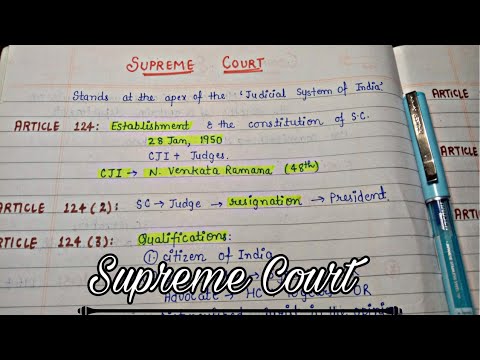 SUPREME COURT
Stands at the apex of the 'Judicial System of India'
ARTICLE 124: Establishment & the constitution of S.C.
28 Jan, 1950
CJI + Judges.
CJI → N. Venkata Ramana (48th)
ARTICLE 124(2): SC → Judge → resignation → President
ARTICLE 124(3): Qualifications:
① citizen of India
Advocate → HC
OR
Supreme Court
ARTICL
ARTICL
ARTI